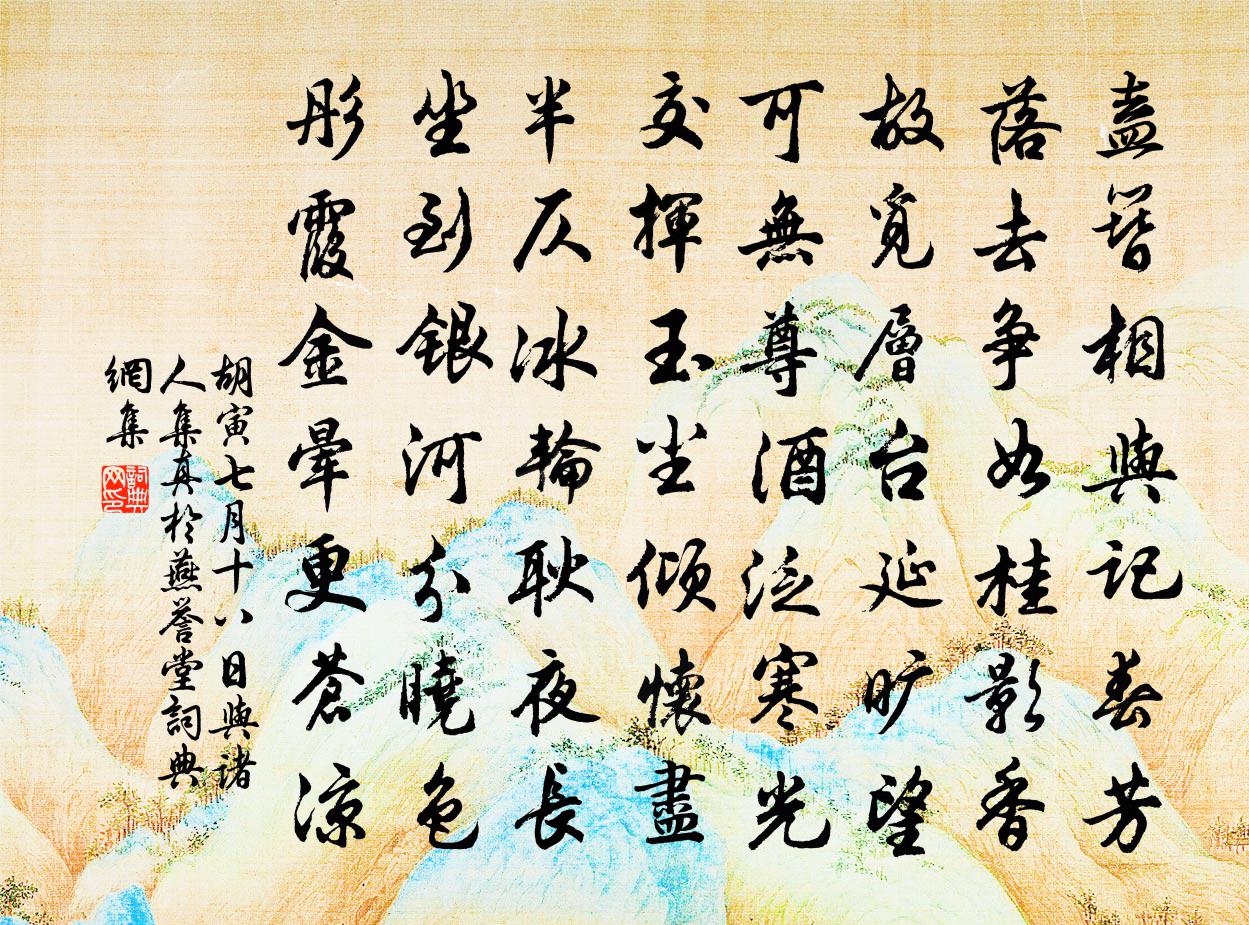 盍簪相與記春芳
落去爭如桂影香
故覓層台延曠望
可無尊酒泛寒光
交揮玉塵傾懷盡
半仄冰輪耿夜長
坐到銀河分曉色
彤霞金暈更蒼涼
胡寅七月十八日與諸
人集真於燕譽堂詞典
網集
詞典網印